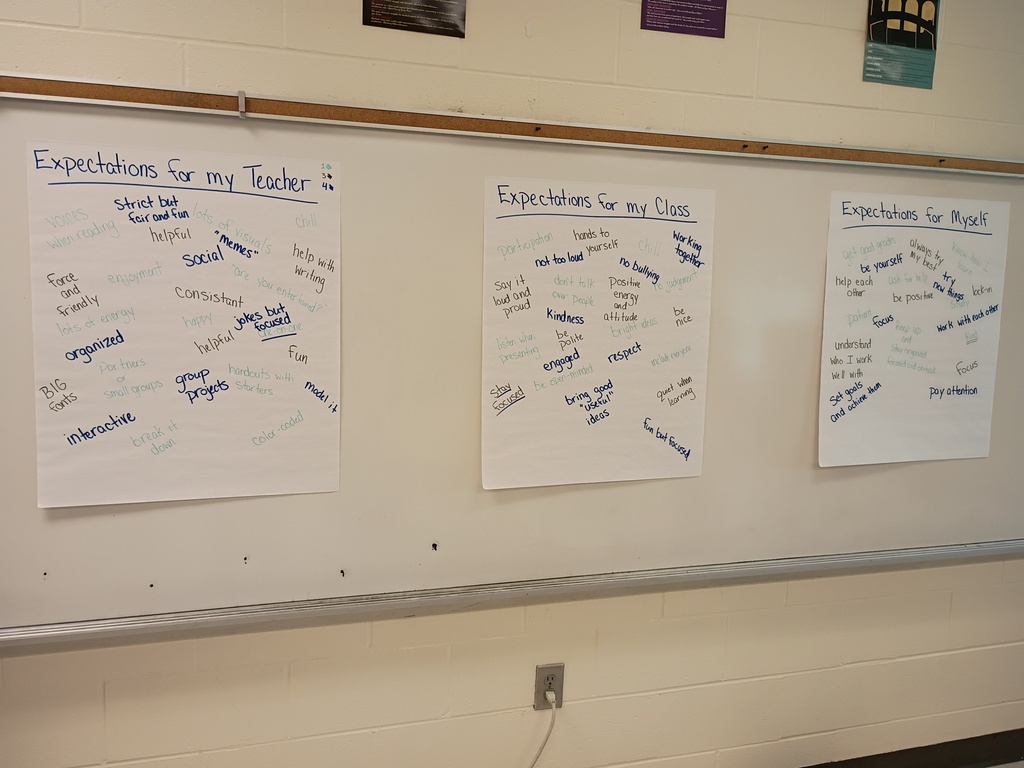 Expectations for my Teacher
1
3
4
voices
when reading
Strict but
fair and fun
lots of visuals
chill
helpful
"memes"
social
help with
writing
Force
and
friendly
enjoyment
"are you entertained?"
Consistant
lots of energy
happy
jokes but
focused
one-on-one
organized
helpful
Fun
Partners
or
small groups
group
projects
handouts with
starters
model it
BIG
fonts
interactive
break it
down
color-coded
Expectations for my Class
participation
hands to
yourself
chill
Working
together
not too loud
no bullying
no judgement
Say it
loud and
proud
don't talk
over people
Positive
energy
and
attitude
Kindness
be
nice
listen when
presenting
be
polite
bright ideas
engaged
respect
include everyone
Stay
Focused
be open-minded
bring good
"useful"
ideas
quiet when
learning
fun but focused
Expectations for Myself
get good grades
always try
my best
be yourself
help each
other
ask for help
try
new things
lock-in
be positive
Focus
work with each other
understand
who I work
well with
Focus
Set goals
and achieve them
pay attention